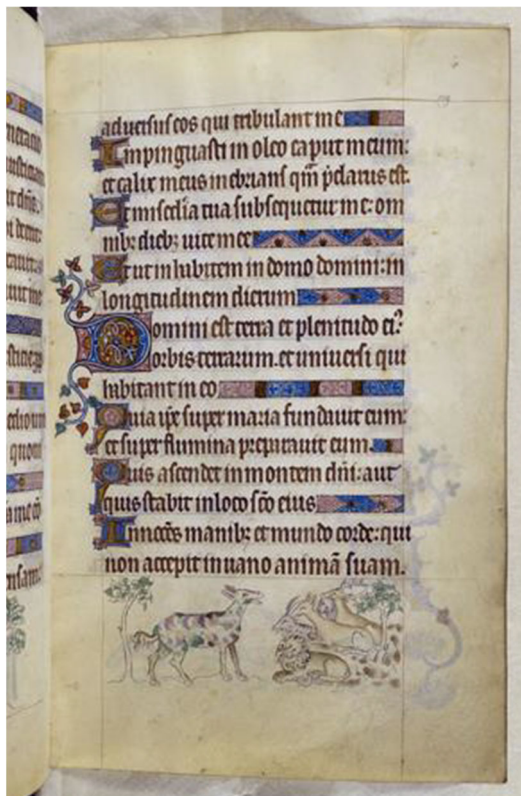 neracio
aduersus eos qui tribulant me
Impinguasti in oleo caput meum:
et calix meus inebrians qm̄ p̄clarus est.
Et mis̄cd̄ia tua subsequetur me: om
nibꝫ diebꝫ uite mee
Et ut inhabitem in domo domini: in
longitudinem dierum
Domini est terra et plenitudo eiꝰ
orbis terrarum. et uniuersi qui
habitant in eo
Quia ip̄e super maria fundauit eum:
et super flumina preparauit eum.
Quis ascendet in montem dn̄i: aut
quis stabit in loco sc̄o eius
Innocēs manibꝫ et mundo corde: qui
non accepit in uano animā suam.